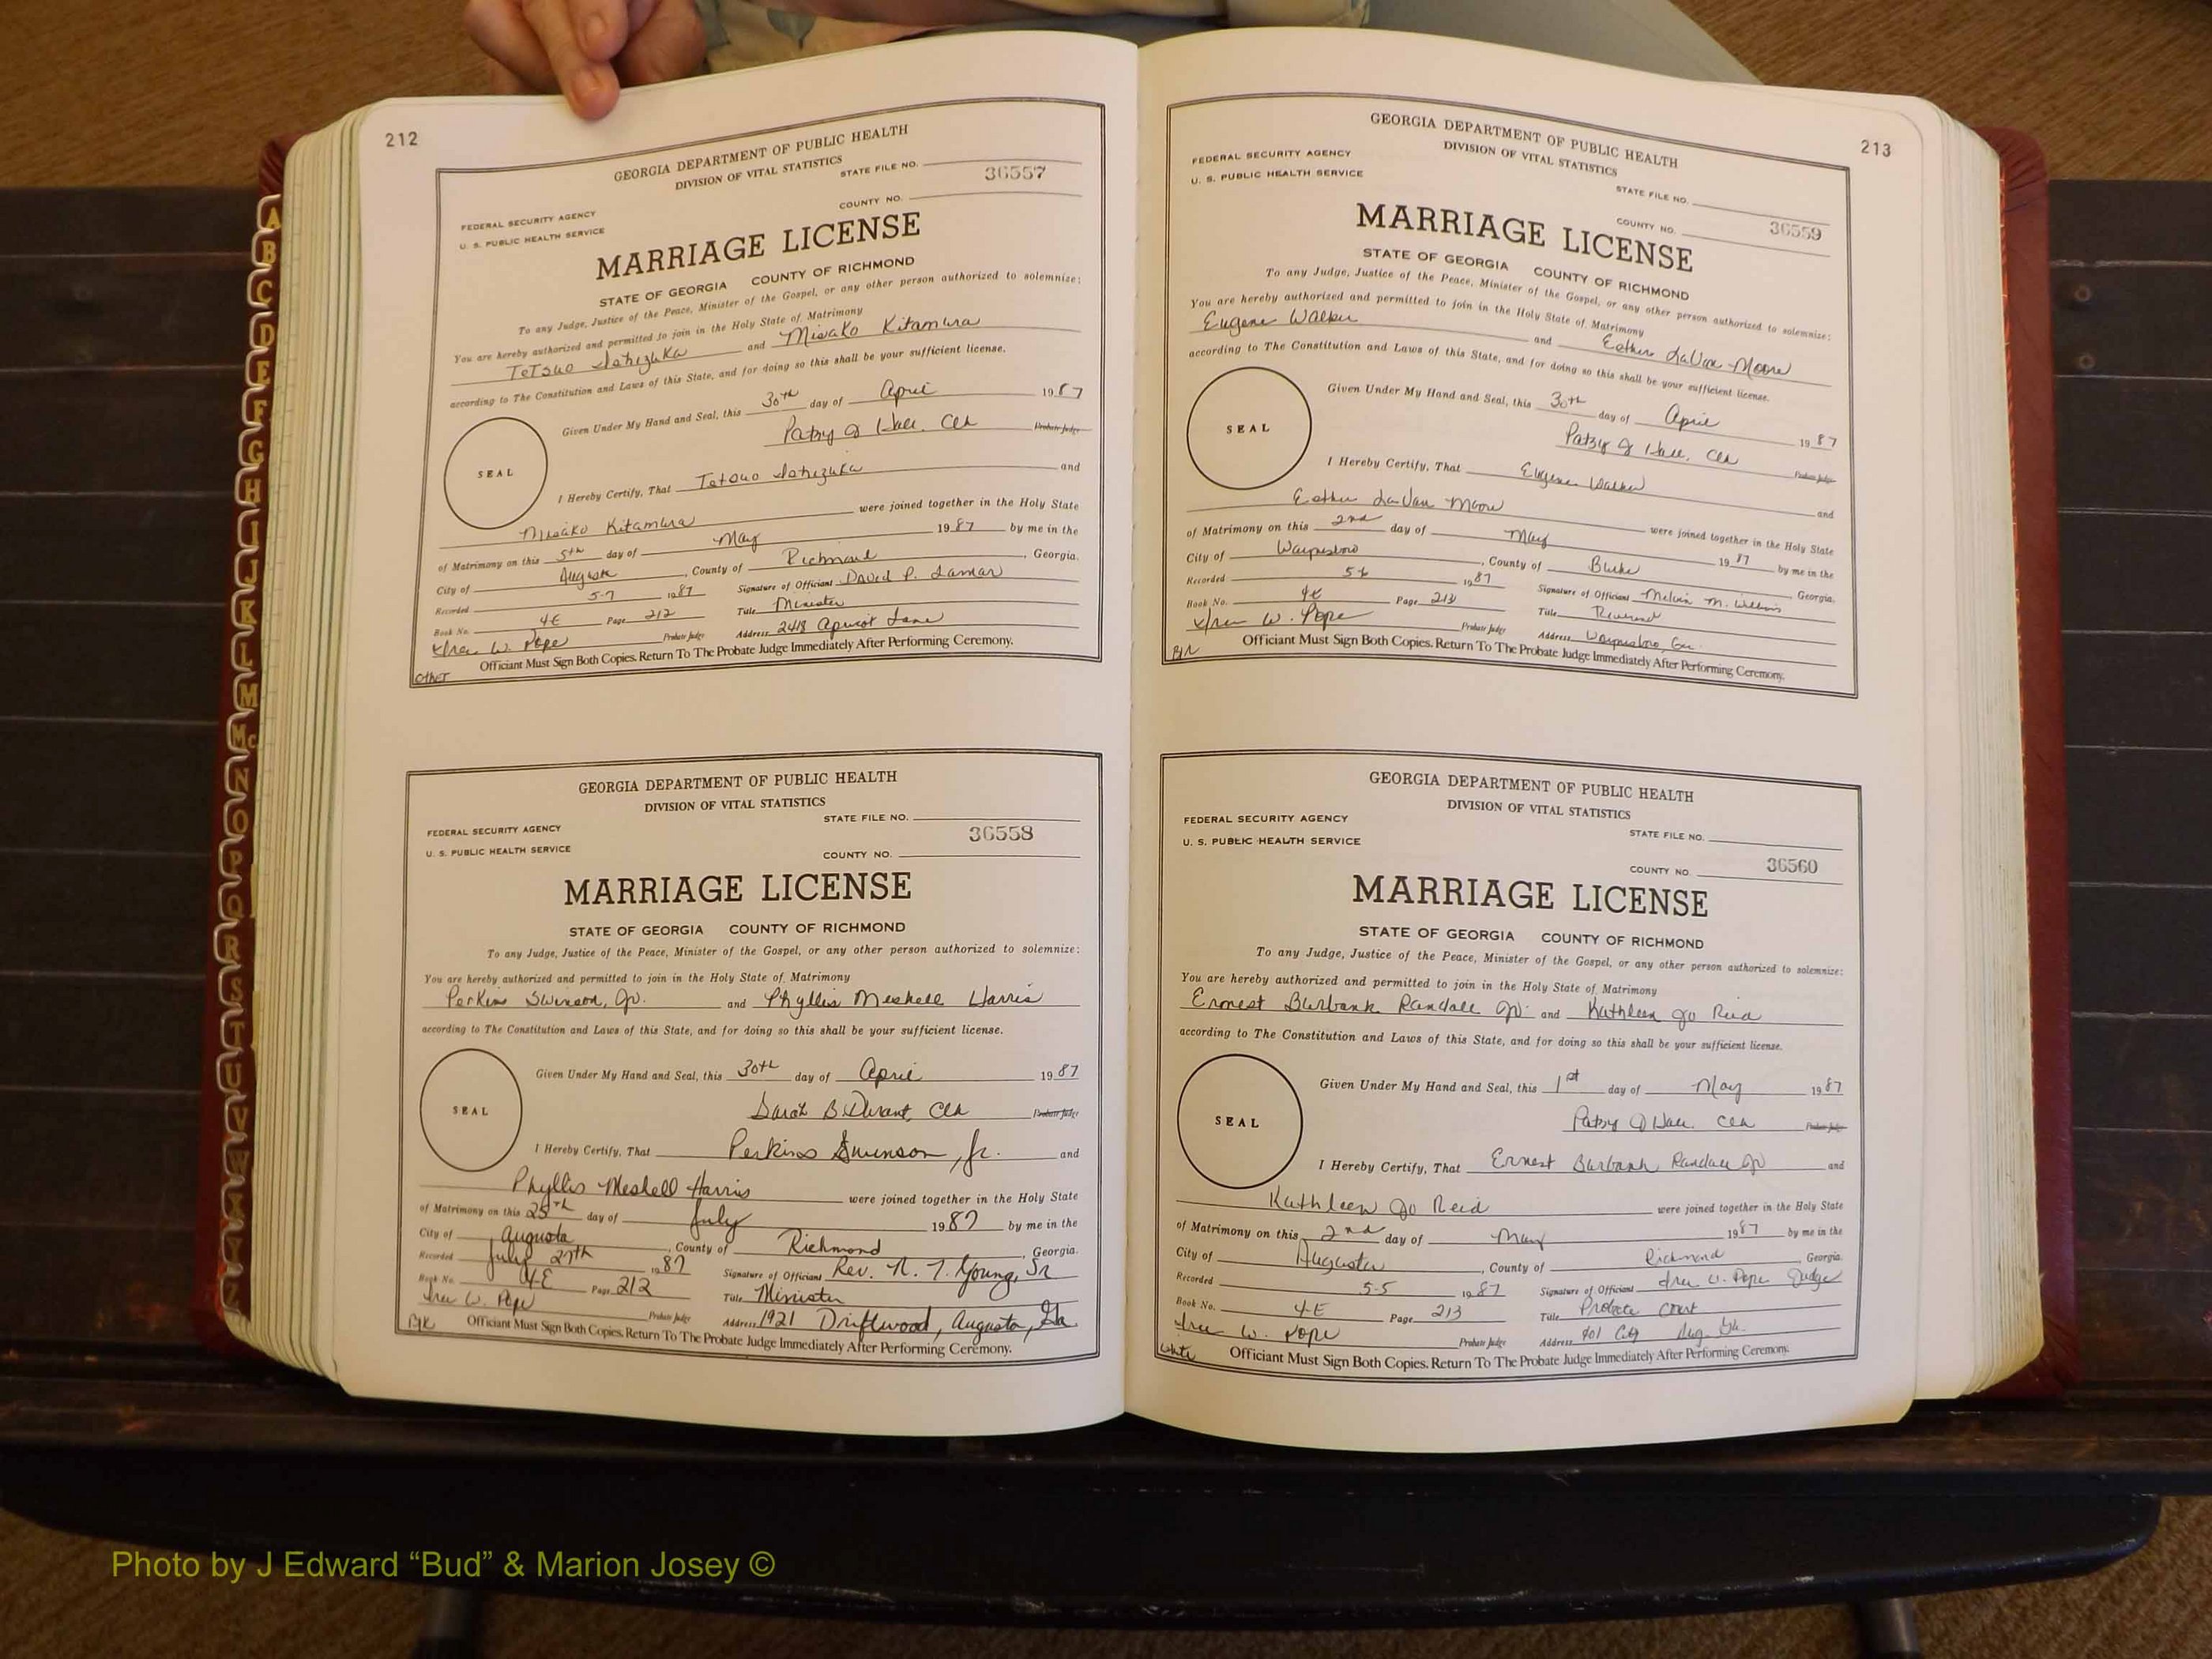 212
GEORGIA DEPARTMENT OF PUBLIC HEALTH
DIVISION OF VITAL STATISTICS
STATE FILE NO.
36557
FEDERAL SECURITY AGENCY
U. S. PUBLIC HEALTH SERVICE
COUNTY NO.
MARRIAGE LICENSE
STATE OF GEORGIA COUNTY OF RICHMOND
To any Judge, Justice of the Peace, Minister of the Gospel, or any other person authorized to solemnize:
You are hereby authorized and permitted to join in the Holy State of Matrimony
Tetsuo Ishizuka and Misako Kitamura
according to The Constitution and Laws of this State, and for doing so this shall be your sufficient license.
Given Under My Hand and Seal, this 30th day of April 1987
Patsy J Hall, Clk Probate Judge
SEAL
I Hereby Certify, That Tetsuo Ishizuka and
Misako Kitamura were joined together in the Holy State
of Matrimony on this 5th day of May 1987 by me in the
City of Augusta, County of Richmond, Georgia.
Recorded 5-7 1987 Signature of Officiant David P. Lamar
Book No. 4E Page 212 Title Minister
W. Pope Probate Judge Address 2418 Apricot Lane
Officiant Must Sign Both Copies. Return To The Probate Judge Immediately After Performing Ceremony.
Other
GEORGIA DEPARTMENT OF PUBLIC HEALTH
DIVISION OF VITAL STATISTICS
STATE FILE NO.
FEDERAL SECURITY AGENCY
36558
U. S. PUBLIC HEALTH SERVICE
COUNTY NO.
MARRIAGE LICENSE
STATE OF GEORGIA COUNTY OF RICHMOND
To any Judge, Justice of the Peace, Minister of the Gospel, or any other person authorized to solemnize:
You are hereby authorized and permitted to join in the Holy State of Matrimony
Perkins Swinson, Jr. and Phyllis Meshell Harris
according to The Constitution and Laws of this State, and for doing so this shall be your sufficient license.
Given Under My Hand and Seal, this 30th day of April 1987
Sarah B. Durant, Clk Probate Judge
SEAL
I Hereby Certify, That Perkins Swinson, Jr. and
Phyllis Meshell Harris were joined together in the Holy State
of Matrimony on this 25th day of July 1987 by me in the
City of Augusta, County of Richmond, Georgia.
Recorded July 27th 1987 Signature of Officiant Rev. N. T. Young, Sr
Book No. 4E Page 212 Title Minister
W. Pope Probate Judge Address 1921 Driftwood, Augusta, Ga
Officiant Must Sign Both Copies. Return To The Probate Judge Immediately After Performing Ceremony.
213
GEORGIA DEPARTMENT OF PUBLIC HEALTH
DIVISION OF VITAL STATISTICS
FEDERAL SECURITY AGENCY
U. S. PUBLIC HEALTH SERVICE
STATE FILE NO.
COUNTY NO. 36559
MARRIAGE LICENSE
STATE OF GEORGIA COUNTY OF RICHMOND
To any Judge, Justice of the Peace, Minister of the Gospel, or any other person authorized to solemnize:
You are hereby authorized and permitted to join in the Holy State of Matrimony
Eugene Walker and Esther LaVon Moore
according to The Constitution and Laws of this State, and for doing so this shall be your sufficient license.
Given Under My Hand and Seal, this 30th day of April 1987
Patsy J Hall, Clk Probate Judge
SEAL
I Hereby Certify, That Eugene Walker and
Esther LaVon Moore were joined together in the Holy State
of Matrimony on this 2nd day of May 1987 by me in the
City of Waynesboro, County of Burke Georgia.
Recorded 5-6 1987 Signature of Officiant Melvin M. Wilkins
Book No. 4E Page 213 Title Reverend
W. Pope Probate Judge Address Waynesboro, Ga.
Officiant Must Sign Both Copies. Return To The Probate Judge Immediately After Performing Ceremony.
GEORGIA DEPARTMENT OF PUBLIC HEALTH
DIVISION OF VITAL STATISTICS
FEDERAL SECURITY AGENCY
STATE FILE NO.
U. S. PUBLIC HEALTH SERVICE
COUNTY NO. 36560
MARRIAGE LICENSE
STATE OF GEORGIA COUNTY OF RICHMOND
To any Judge, Justice of the Peace, Minister of the Gospel, or any other person authorized to solemnize:
You are hereby authorized and permitted to join in the Holy State of Matrimony
Ernest Burbank Randall Jr. and Kathleen Jo Reid
according to The Constitution and Laws of this State, and for doing so this shall be your sufficient license.
Given Under My Hand and Seal, this 1st day of May 1987
Patsy J Hall, Clk Probate Judge
SEAL
I Hereby Certify, That Ernest Burbank Randall Jr and
Kathleen Jo Reid were joined together in the Holy State
of Matrimony on this 2nd day of May 1987 by me in the
City of Augusta, County of Richmond Georgia.
Recorded 5-5 1987 Signature of Officiant W. Pope Judge
Book No. 4-E Page 213 Title Probate Court
W. Pope Probate Judge Address 401 City Aug. Ga.
White Officiant Must Sign Both Copies. Return To The Probate Judge Immediately After Performing Ceremony.
A
B
C
D
E
F
G
H
I
J
K
L
M
Mc
N
O
P
Q
R
S
T
U
V
W
X
Y
Z
Photo by J Edward “Bud” & Marion Josey ©